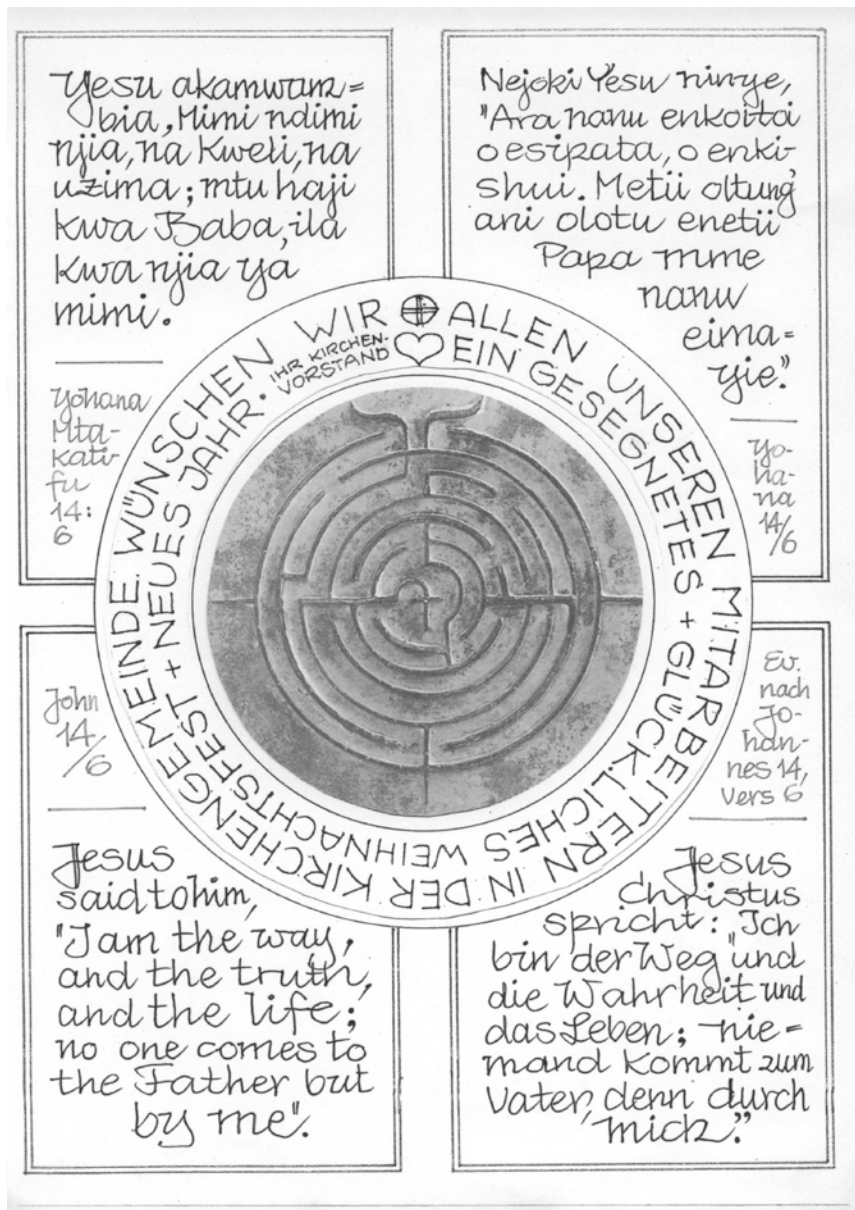 Yesu akamwam=
bia, Mimi ndimi
njia, na Kweli, na
uzima; mtu haji
kwa Baba, ila
kwa njia ya
mimi.
Yohana
Mta-
kati-
fu
14:
6
Nejoki Yesu ninye,
"Ara nanu enkoitoi
o esipata, o enki-
shui. Metii oltung'
ani olotu enetii
Papa mme
nanu
eima=
yie."
Yo-
ha-
na
14/6
WIR ALLEN UNSEREN MITARBEITERN IN DER KIRCHENGEMEINDE. WÜNSCHEN
EIN GESEGNETES + GLÜCKLICHES WEIHNACHTSFEST + NEUES JAHR.
IHR KIRCHEN-
VORSTAND
John
14/6
Jesus
said to him,
"I am the way,
and the truth,
and the life;
no one comes to
the Father but
by me".
Ev.
nach
Jo-
han-
nes 14,
Vers 6
Jesus
Christus
spricht: "Ich
bin der Weg und
die Wahrheit und
das Leben; nie=
mand kommt zum
Vater, denn durch
mich."